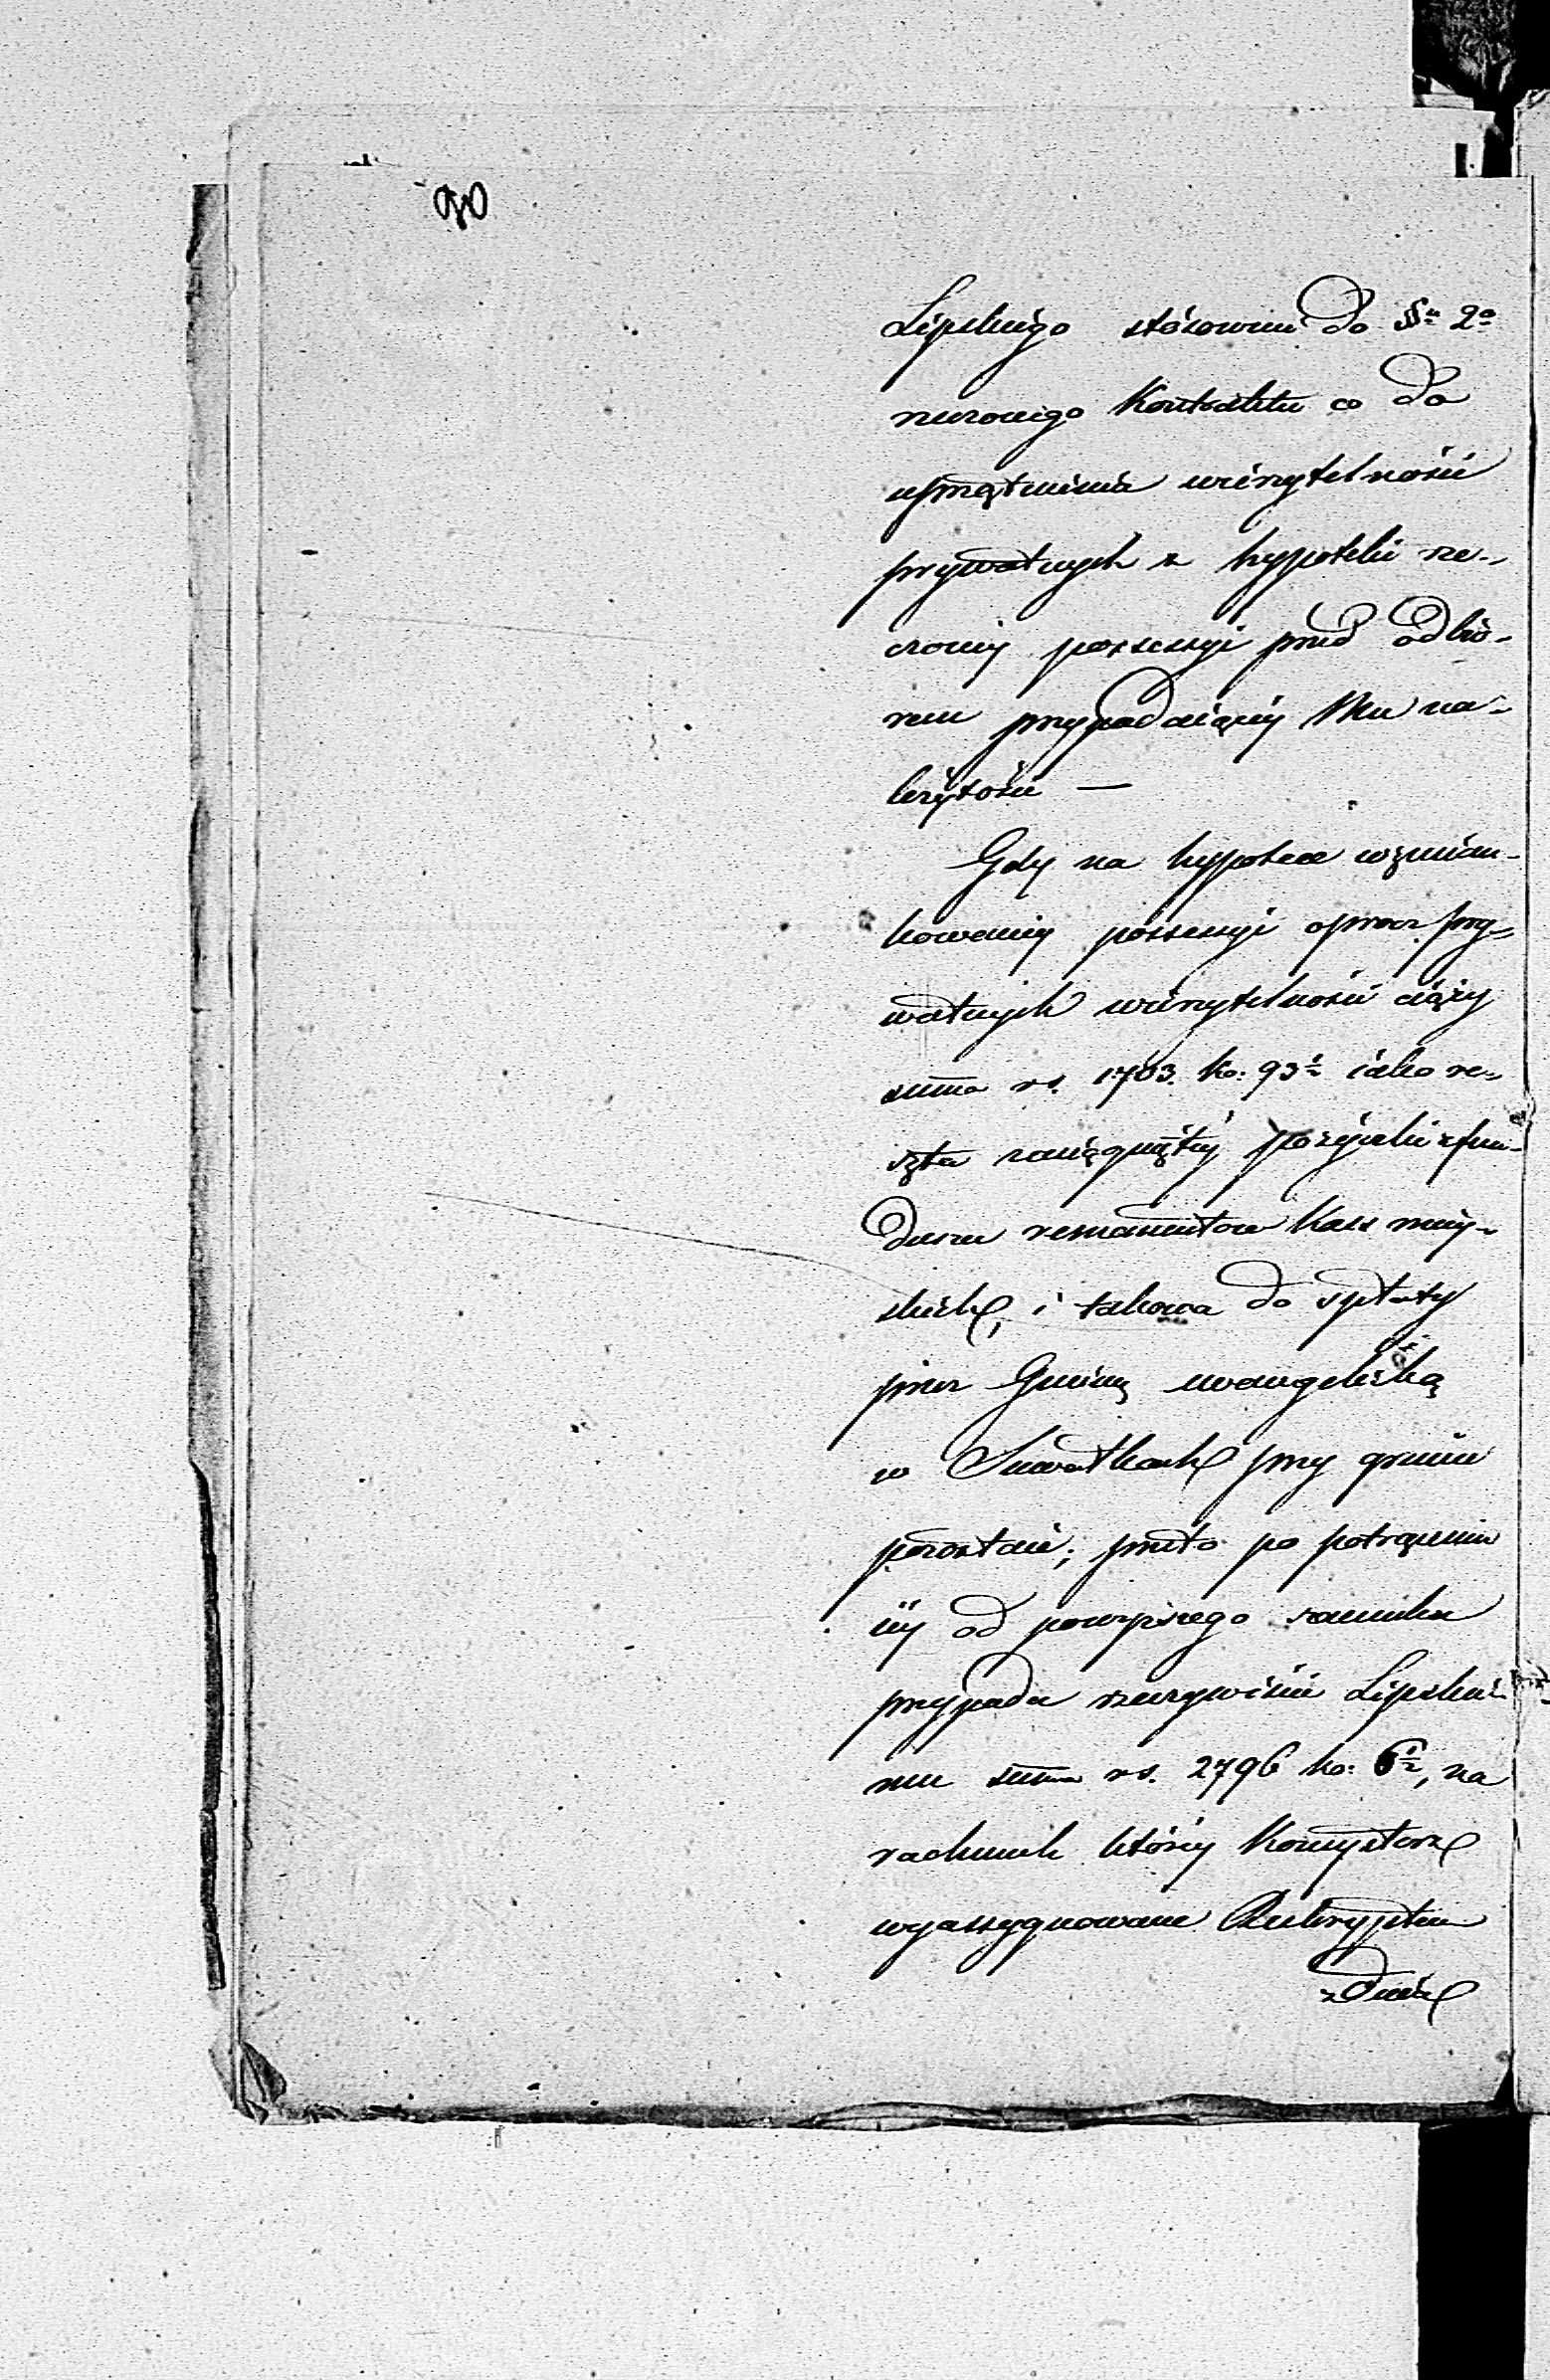 90
Lipskiego stósownie do §u 2o
rzeczonego Kontraktu co do
uprzątnienia wierzytelności
prywatnych z hypoteki rze-
czoney possessyi przed odbio-
rem przypadaiącey Mu na-
leżytości —
Gdy na hypotece wzmian-
kowaney possessyi oprocz pry-
watnych wierzytelności ciąży
summa rs. 1703. ko: 93½ iako re-
szta zaciągniętey pożyczki z fun-
duszu remanentow Kass miey-
skich, i takowa do spłaty
przez Gminę ewangelicką
w Suwałkach przy gruncie
pozostaie; przeto po potrąceniu
iey od powyższego szacunku
przypada rzeczywiście Lipskie-
mu summa rs. 2796 ko: 6½, na
rachunek którey Konsystorz
wyassygnowane Reskryptem
z Dnia